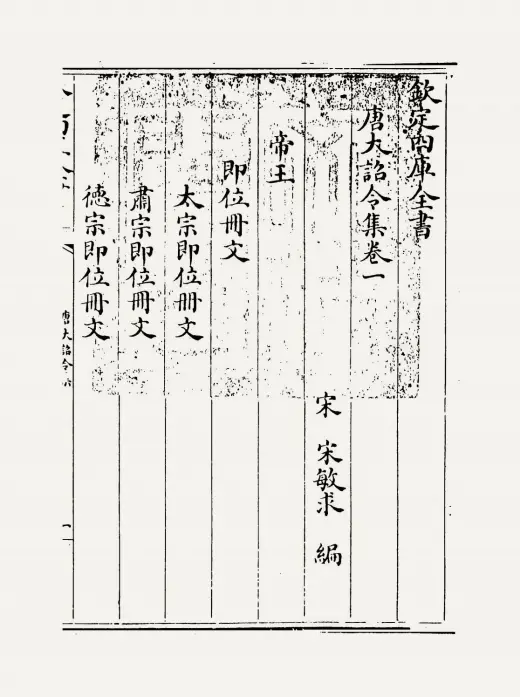 欽定四庫全書
唐大詔令集卷一
宋 宋敏求 編
帝王
即位冊文
太宗即位冊文
肅宗即位冊文
徳宗即位冊文
唐大詔令集
一